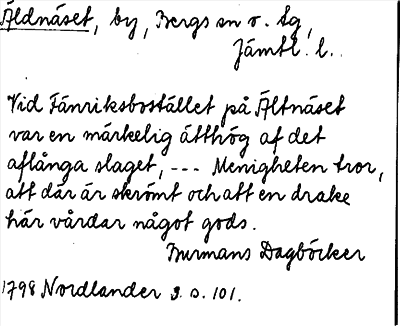 Åldnäset, by, Bergs sn o. tg,
Jämtl. l..
Vid Fänriksbostället på Åltnäset
var en märkelig ätthög af det
aflånga slaget, --- Menigheten tror,
att där är skrömt och att en drake
här vårdar något gods.
Burmans Dagböcker
1798 Nordlander 3. s. 101.